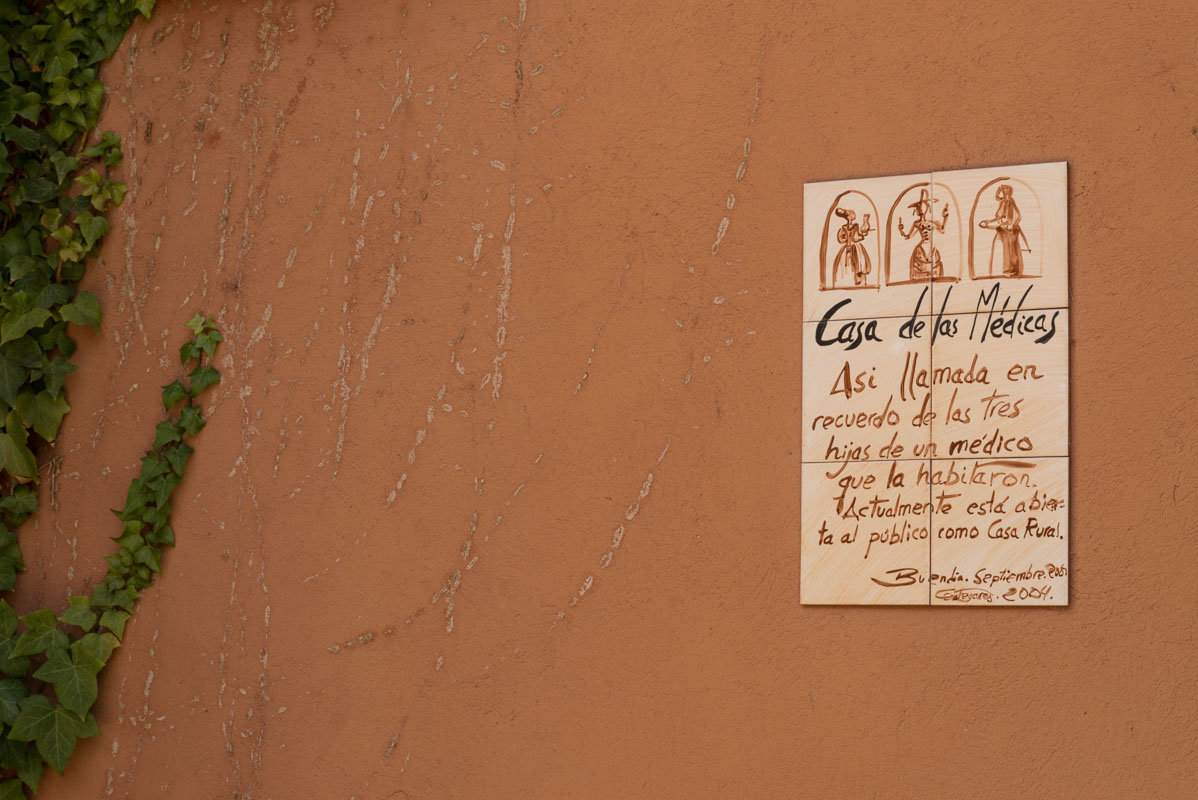 Casa de las Médicas
Asi llamada en
recuerdo de las tres
hijas de un médico
que la habitaron.
Actualmente está abier-
ta al público como Casa Rural.
Buendia. Septiembre.
2004.